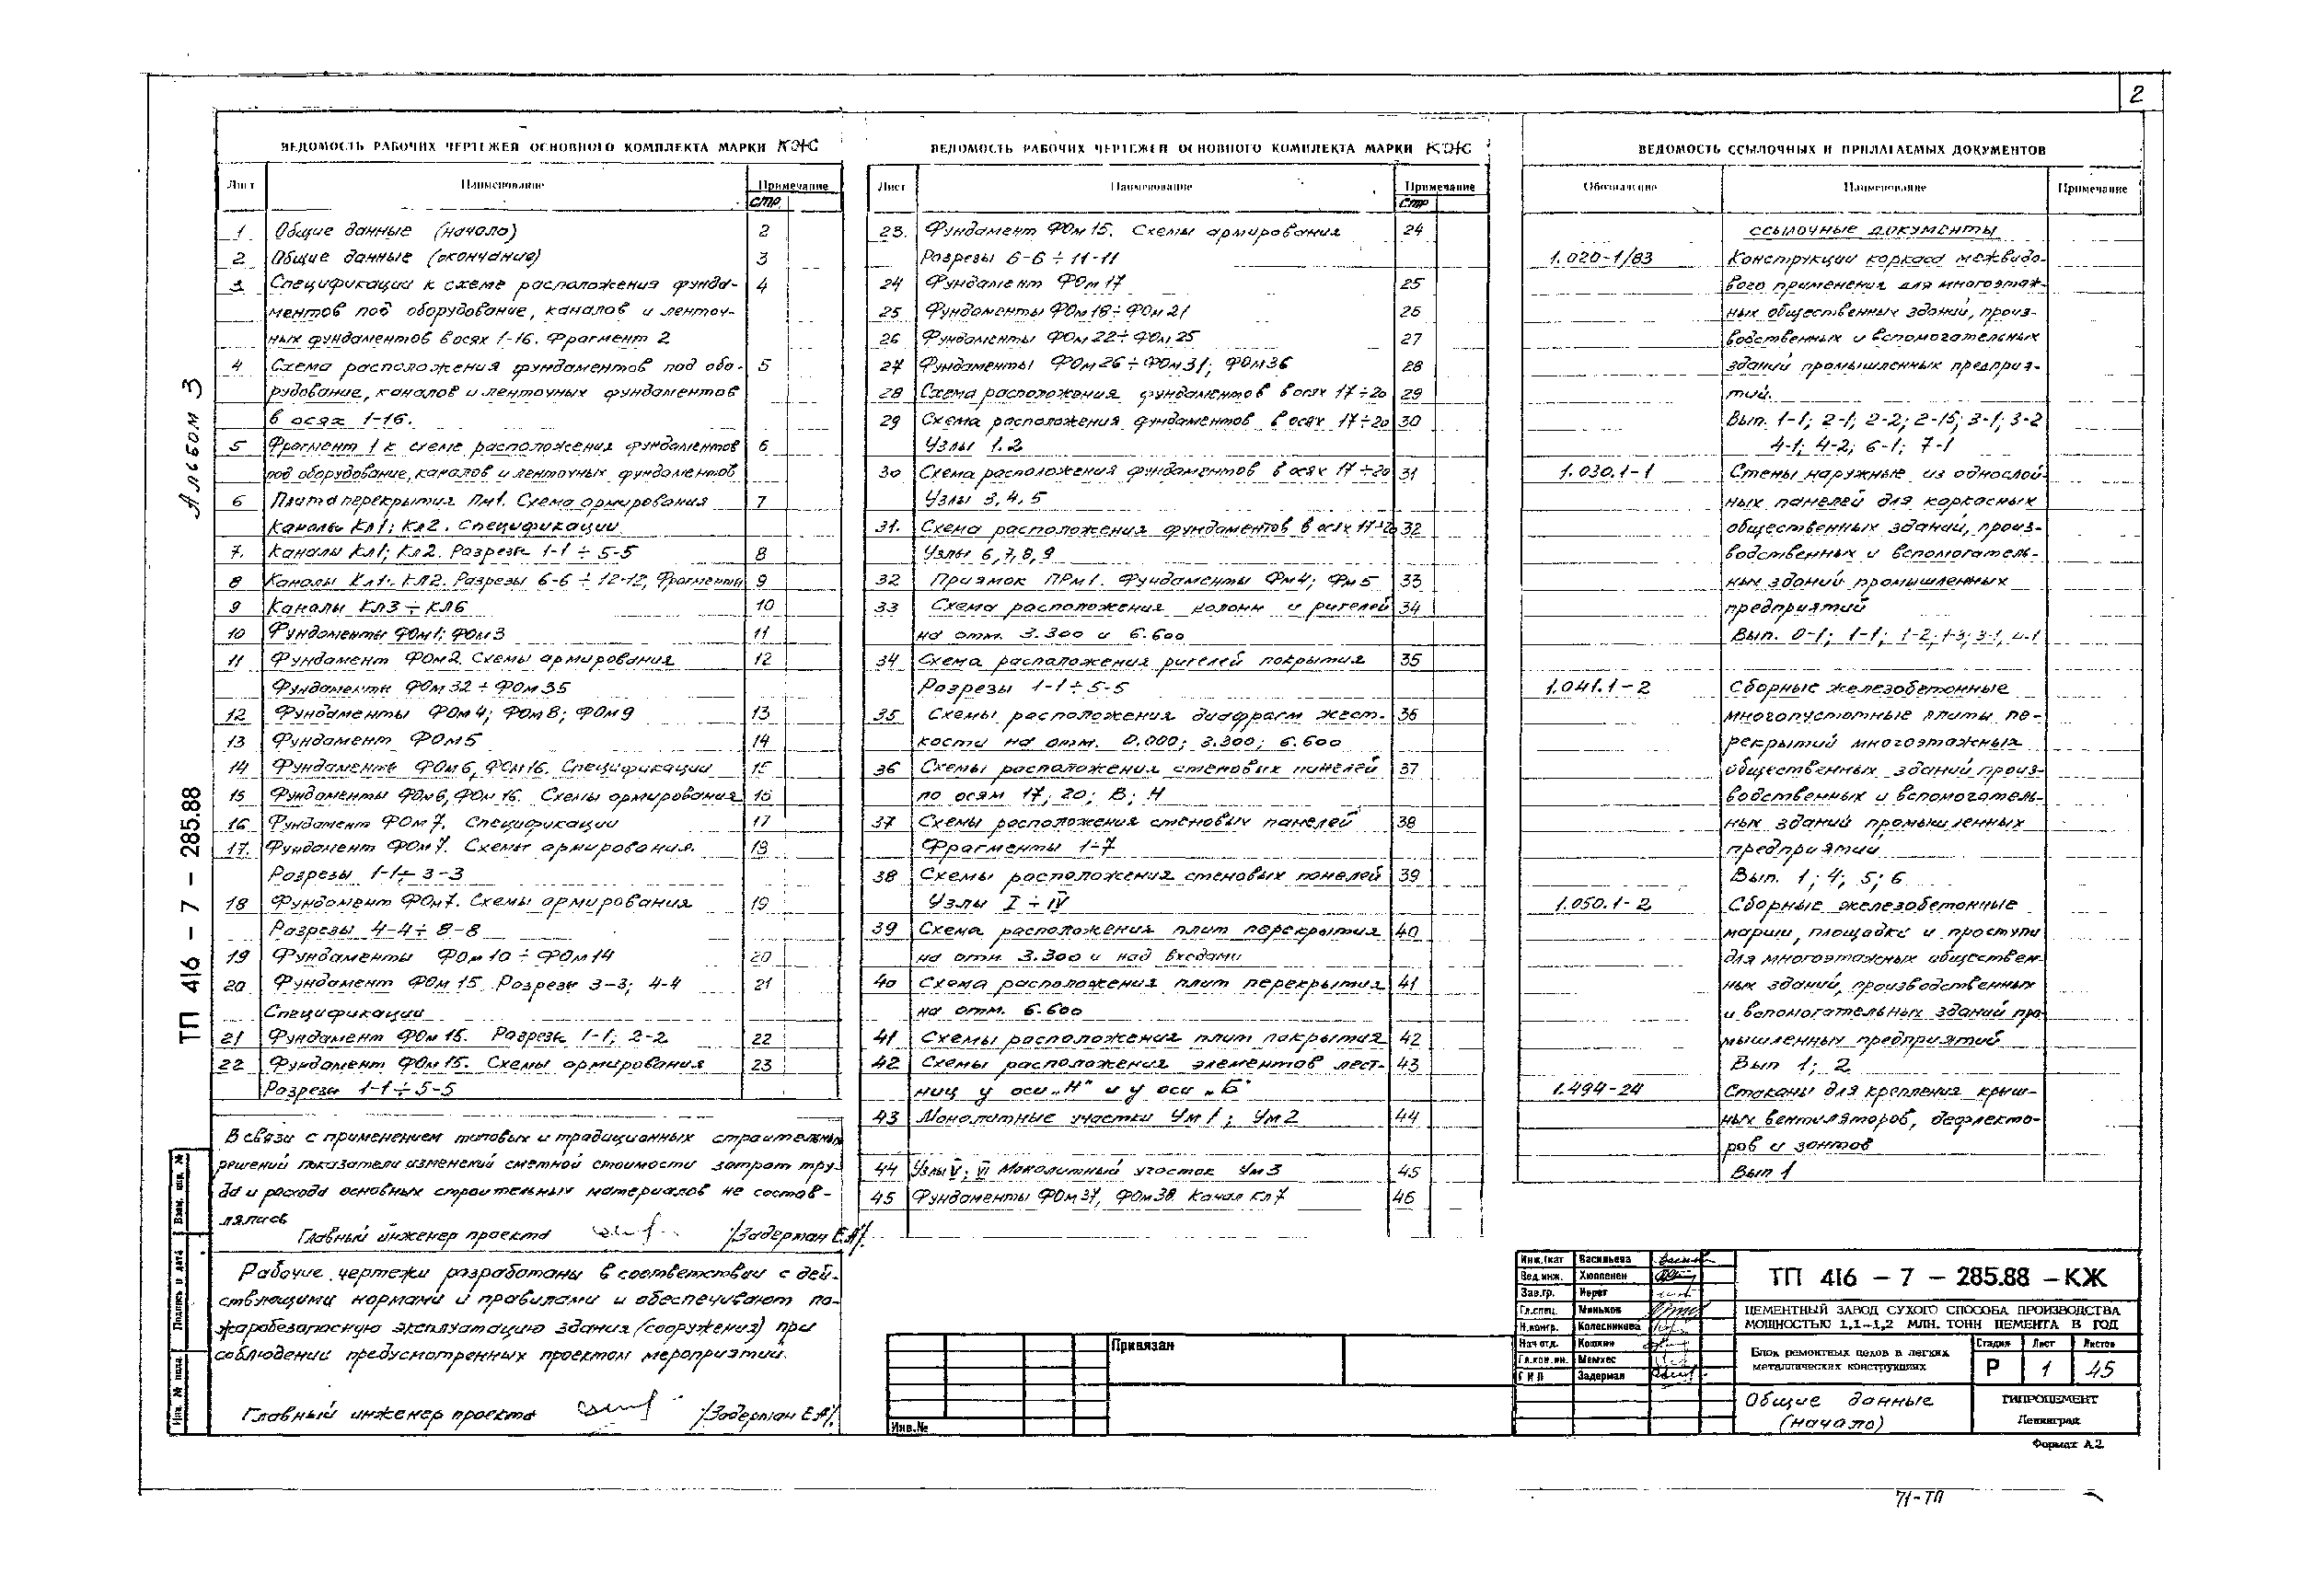 2
Альбом 3
ТП 416 – 7 – 285.88
ВЕДОМОСТЬ РАБОЧИХ ЧЕРТЕЖЕЙ ОСНОВНОГО КОМПЛЕКТА МАРКИ КЖ
Лист Наименование Примечание
стр.
1 Общие данные (начало) 2
2 Общие данные (окончание) 3
3 Спецификации к схеме расположения фунда- 4
ментов под оборудование, каналов и ленточ-
ных фундаментов в осях 1-16. Фрагмент 2
4 Схема расположения фундаментов под обо- 5
рудование, каналов и ленточных фундаментов
в осях 1-16.
5 Фрагмент 1 к схеме расположения фундаментов 6
под оборудование, каналов и ленточных фундаментов
6 Плита перекрытия Пм1. Схема армирования 7
Каналы Кл1; Кл2. Спецификации
7. Каналы Кл1; Кл2. Разрезы 1-1 ÷ 5-5 8
8 Каналы Кл1; КЛ2. Разрезы 6-6 ÷ 12-12, Фрагменты 9
9 Каналы КЛ3 ÷ КЛ6 10
10 Фундаменты ФОм1; ФОм3 11
11 Фундамент ФОм2. Схемы армирования 12
Фундаменты ФОм32 ÷ ФОм35
12 Фундаменты ФОм4; ФОм8; ФОм9 13
13 Фундамент ФОм5 14
14 Фундаменты ФОм6, ФОм16. Спецификации 15
15 Фундаменты ФОм6, ФОм16. Схемы армирования 16
16 Фундамент ФОм7. Спецификации 17
17. Фундамент ФОм7. Схемы армирования. 18
Разрезы 1-1 ÷ 3-3
18 Фундамент ФОм7. Схемы армирования 19
Разрезы 4-4 ÷ 8-8
19 Фундаменты ФОм10 ÷ ФОм14 20
20 Фундамент ФОм15. Разрезы 3-3; 4-4 21
Спецификации
21 Фундамент ФОм15. Разрезы 1-1; 2-2 22
22 Фундамент ФОм15. Схемы армирования 23
Разрезы 1-1 ÷ 5-5
В связи с применением типовых и традиционных строительных
решений показатели изменений сметной стоимости затрат тру-
да и расхода основных строительных материалов не состав-
лялись
Главный инженер проекта /Задерман Е.А/.
Рабочие чертежи разработаны в соответствии с дей-
ствующими нормами и правилами и обеспечивают по-
жаробезопасную эксплуатацию здания (сооружения) при
соблюдении предусмотренных проектом мероприятий.
Главный инженер проекта /Задерман Е.А/.
Взам. инв. №
Подпись и дата
Инв. № подл.
ВЕДОМОСТЬ РАБОЧИХ ЧЕРТЕЖЕЙ ОСНОВНОГО КОМПЛЕКТА МАРКИ КЖ
Лист Наименование Примечание
стр
23. Фундамент ФОм15. Схемы армирования 24
Разрезы 6-6 ÷ 11-11
24 Фундамент ФОм17 25
25 Фундаменты ФОм18 ÷ ФОм21 26
26 Фундаменты ФОм22 ÷ ФОм25 27
27 Фундаменты ФОм26 ÷ ФОм31; ФОм36 28
28 Схема расположения фундаментов в осях 17 ÷ 20 29
29 Схема расположения фундаментов в осях 17 ÷ 20 30
Узлы 1.2
30 Схема расположения фундаментов в осях 17 ÷ 20 31
Узлы 3, 4, 5
31. Схема расположения фундаментов в осях 17 ÷ 20 32
Узлы 6, 7, 8, 9
32 Приямок ПРм1. Фундаменты Фм4; Фм5 33
33 Схема расположения колонн и ригелей 34
на отм. 3.300 и 6.600
34 Схема расположения ригелей покрытия 35
Разрезы 1-1 ÷ 5-5
35 Схемы расположения диафрагм жест- 36
кости на отм. 0.000; 3.300; 6.600
36 Схемы расположения стеновых панелей 37
по осям 17; 20; В; Н
37 Схемы расположения стеновых панелей 38
Фрагменты 1-7
38 Схемы расположения стеновых панелей 39
Узлы I ÷ IV
39 Схема расположения плит перекрытия 40
на отм. 3.300 и над входами
40 Схема расположения плит перекрытия 41
на отм. 6.600
41 Схемы расположения плит покрытия 42
42 Схемы расположения элементов лест- 43
ниц у оси „Н" и у оси „Б"
43 Монолитные участки Ум1; Ум2 44
44 Узлы V; VI Монолитный участок Ум3 45
45 Фундаменты ФОм37, ФОм38. Канал Кл7 46
ВЕДОМОСТЬ ССЫЛОЧНЫХ И ПРИЛАГАЕМЫХ ДОКУМЕНТОВ
Обозначение Наименование Примечание
ссылочные документы
1.020-1/83 Конструкции каркаса межвидо-
вого применения для многоэтаж-
ных общественных зданий, произ-
водственных и вспомогательных
зданий промышленных предприя-
тий.
Вып. 1-1; 2-1; 2-2; 2-15; 3-1; 3-2
4-1; 4-2; 6-1; 7-1
1.030.1-1 Стены наружные из однослой-
ных панелей для каркасных
общественных зданий, произ-
водственных и вспомогатель-
ных зданий промышленных
предприятий
Вып. 0-1; 1-1; 1-2; 1-3; 3-1, 4-1
1.041.1-2 Сборные железобетонные
многопустотные плиты пе-
рекрытий многоэтажных
общественных зданий произ-
водственных и вспомогатель-
ных зданий промышленных
предприятий
Вып. 1; 4; 5; 6
1.050.1-2 Сборные железобетонные
марши, площадки и проступи
для многоэтажных обществен-
ных зданий, производственных
и вспомогательных зданий про
мышленных предприятий
Вып 1; 2
1.494-24 Стаканы для крепления крыш-
ных вентиляторов, дефлекто-
ров и зонтов
Вып 1
Привязан
Инв.№
Инж.Iкат Васильева
Вед.инж. Хюппенен
Зав.гр. Нерег
Гл.спец. Миньков
Н.контр. Колесникова
Нач отд. Кошкин
Гл.кон.ин. Мемхес
ГИП Задерман
ТП 416 – 7 – 285.88 – КЖ
ЦЕМЕНТНЫЙ ЗАВОД СУХОГО СПОСОБА ПРОИЗВОДСТВА
МОЩНОСТЬЮ 1,1–1,2 МЛН. ТОНН ЦЕМЕНТА В ГОД
Блок ремонтных цехов в легких
металлических конструкциях
Стадия Лист Листов
Р 1 45
Общие данные
(начало)
ГИПРОЦЕМЕНТ
Ленинград
Формат А2
71-ТП